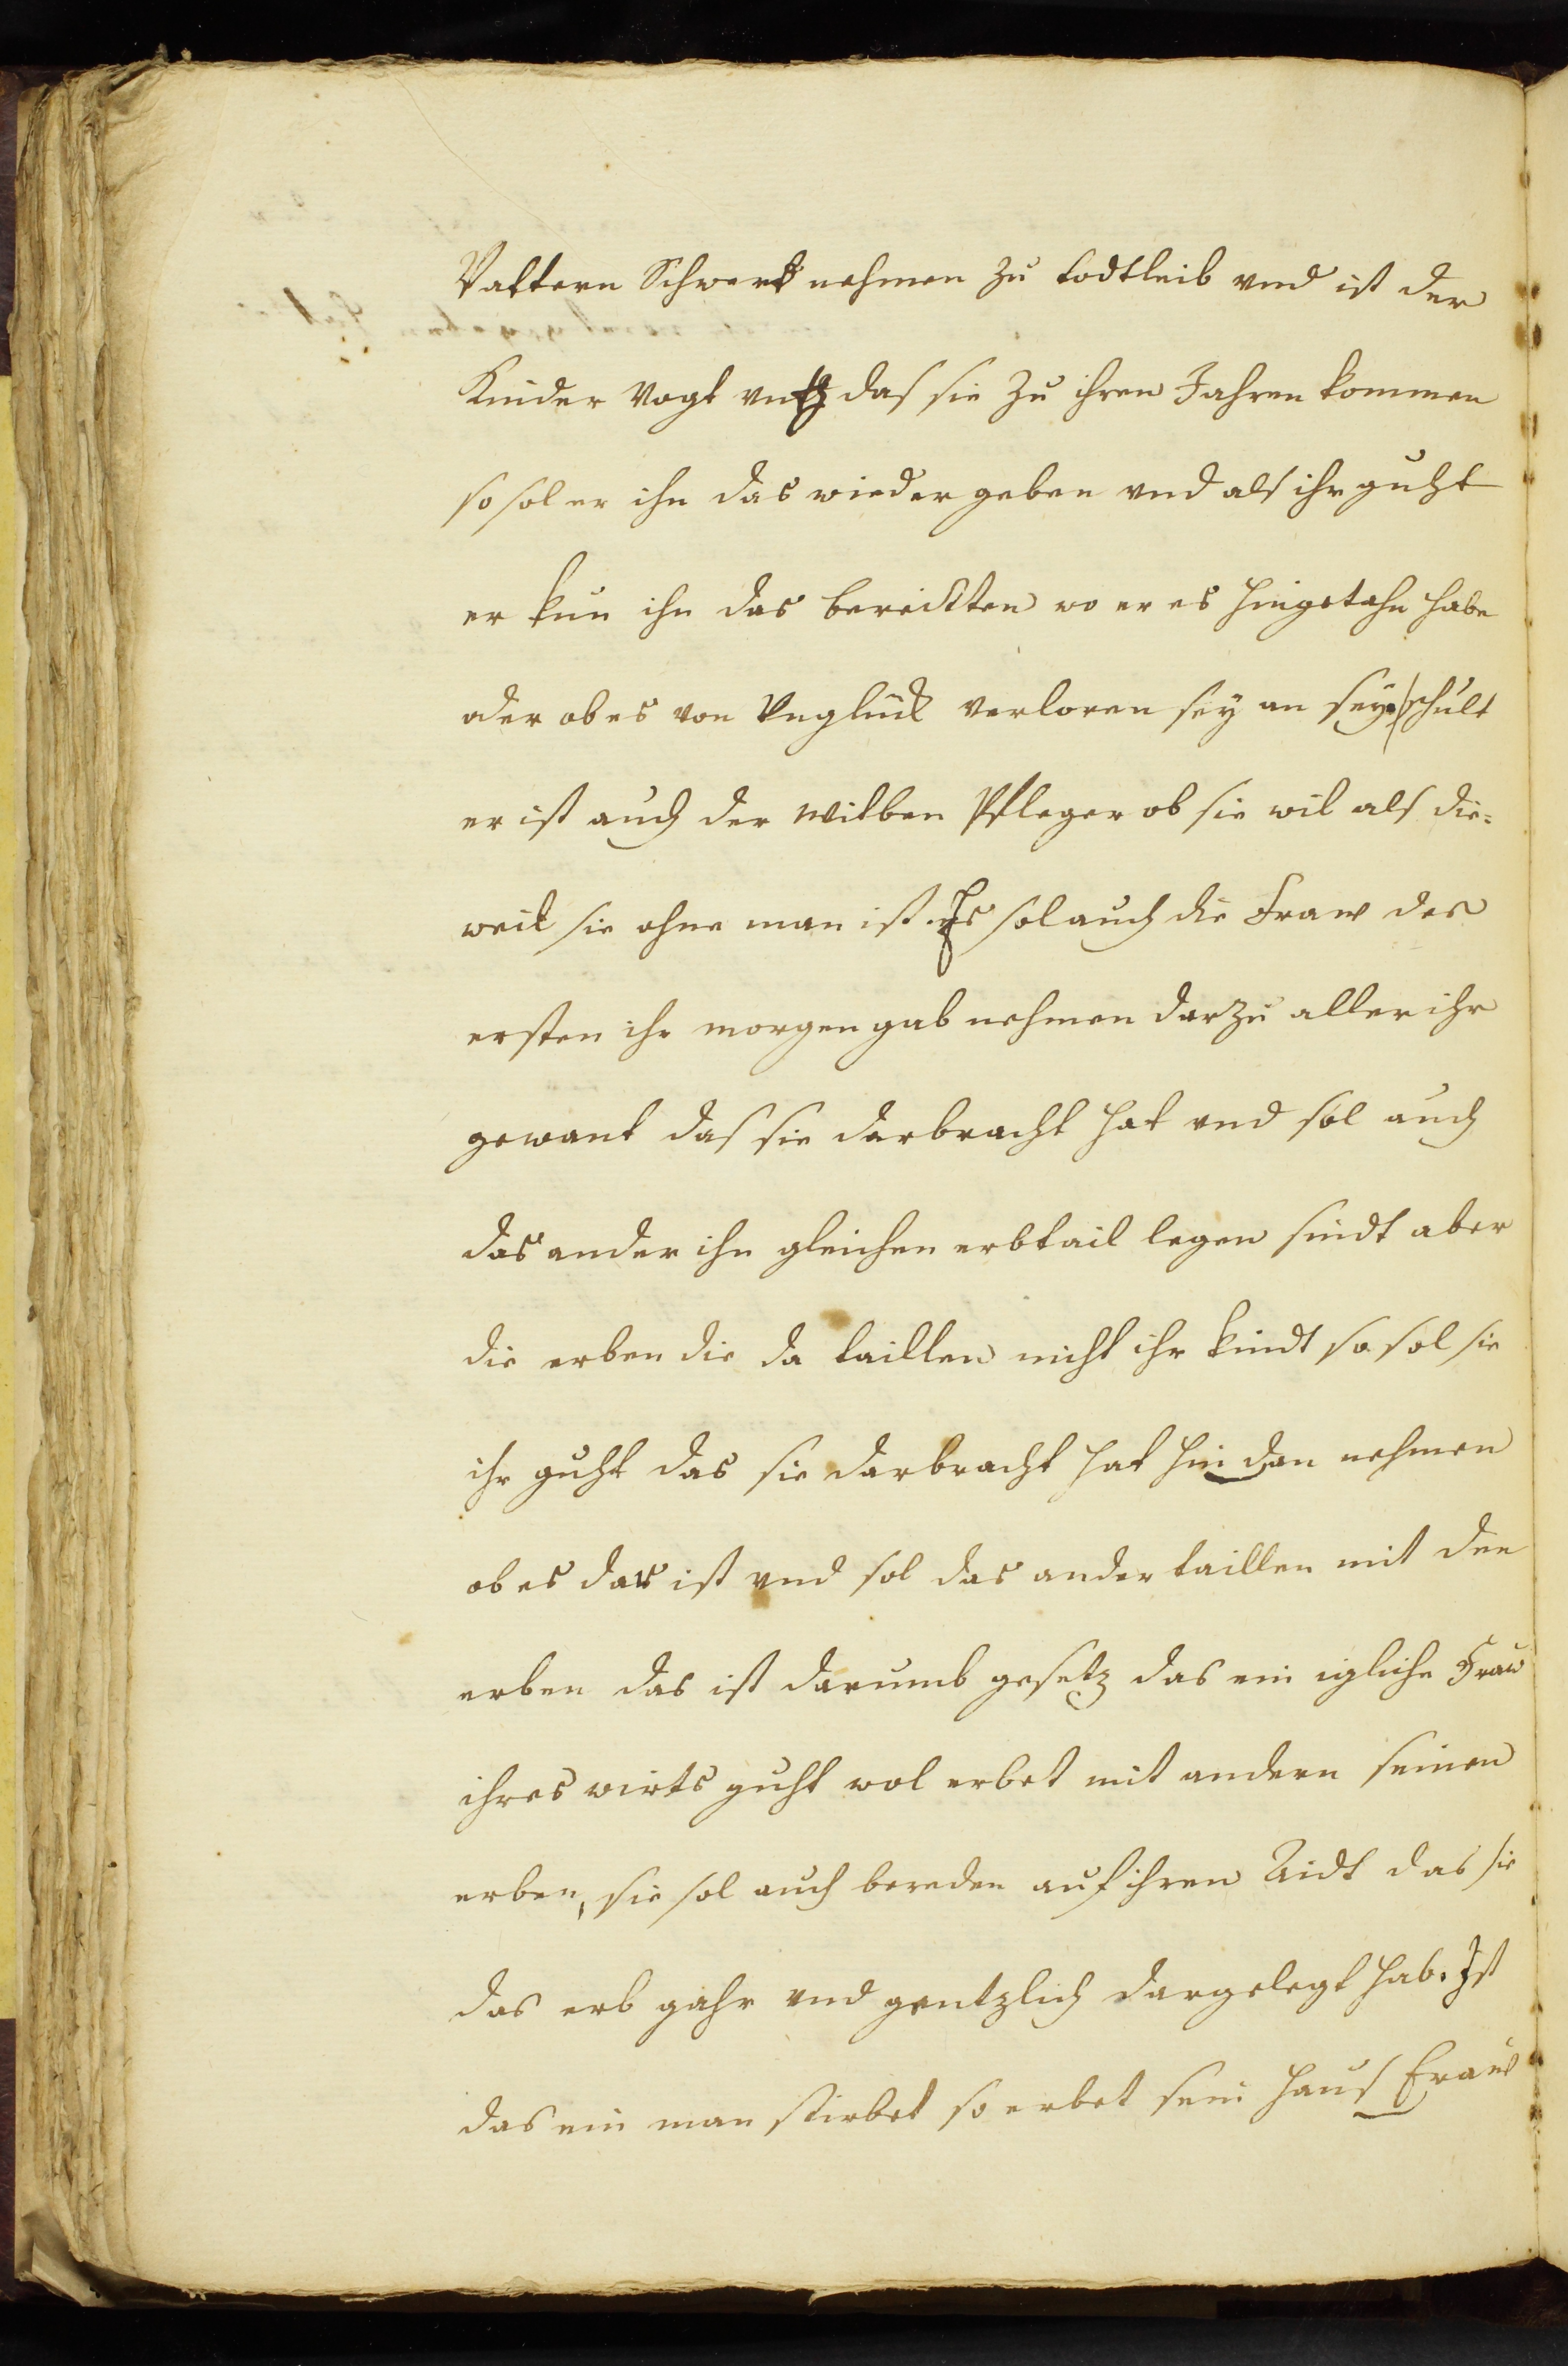 Vattern Schwert nehmen zu todtleib vnd ist der
Kinder Vogt vntz das sie zu ihren Jahren kommen
so sol er ihn das wieder geben vnd als ihr guht
er kün ihn das berichten wo er es hingetahn habe
oder ob es von Vnglück verloren sey an seyn schult
er ist auch der witben Pfleger ob sie wil als die=
weil sie ohne man ist. Es sol auch die Fraw des
ersten ihr morgen gab nehmen darzu aller ihr
gewant das sie darbracht hat vnd sol auch
das ander ihn gleichen erbtail legen sindt aber
die erben die da taillen nicht ihr kindt so sol sie
ihr guht das sie darbracht hat hin dan nehmen
ob es das ist vnd sol das ander taillen mit den
erben das ist darumb gesetz das ein igliche Fraw
ihres wirts guht wol erbet mit andern seinen
erben, sie sol auch bereden auf ihren Aidt das sie
das erb gahr vnd gentzlich dargelegt hab. Ist
das ein man stirbet so erbet sein haus Fraw